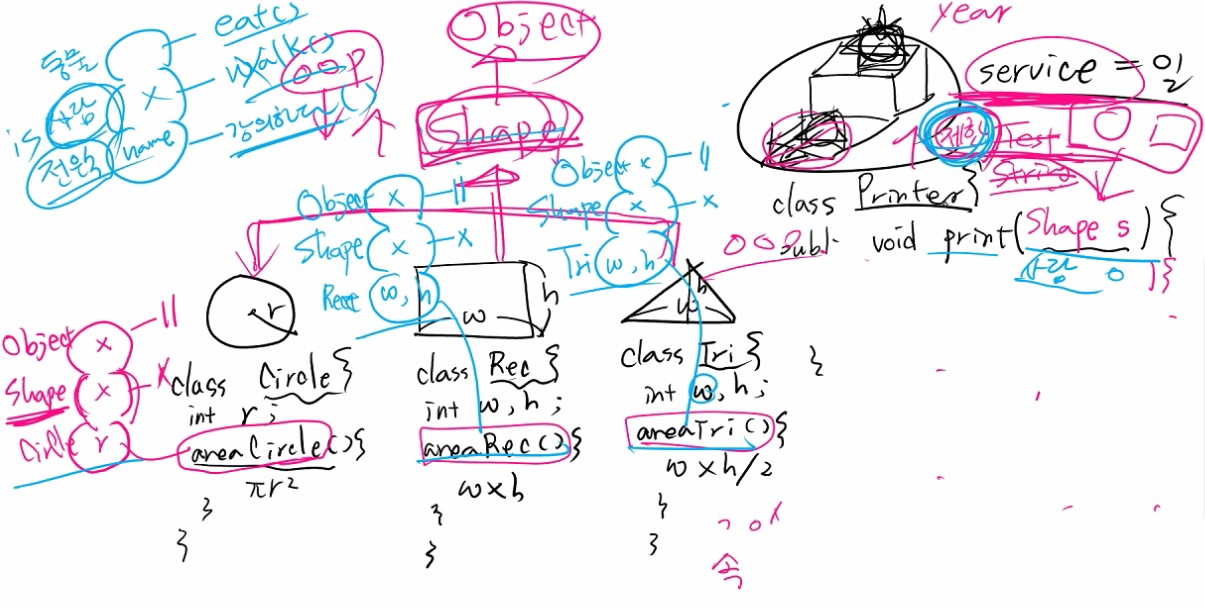 eat()
동물
walk()
oop
is
사람
x
강의하다()
직원
name
Object
Shape
year
service = 01
2
Test
String
class Printer{
void print(Shape s){
사람 o ){
}
Object x 11
Shape x x
Rect w, h
Object x 11
Shape x x
Tri w, h
Object x 11
Shape x x
Circle r
r
w h
w h
class Circle{
int r;
areaCircle(){
πr²
}
}
class Rec{
int w, h;
areaRec(){
w x h
}
}
class Tri{
int w, h;
areaTri(){
w x h / 2
}
}
속